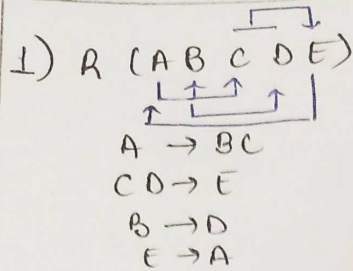 1) R (A B C D E)
A → BC
CD → E
B → D
E → A